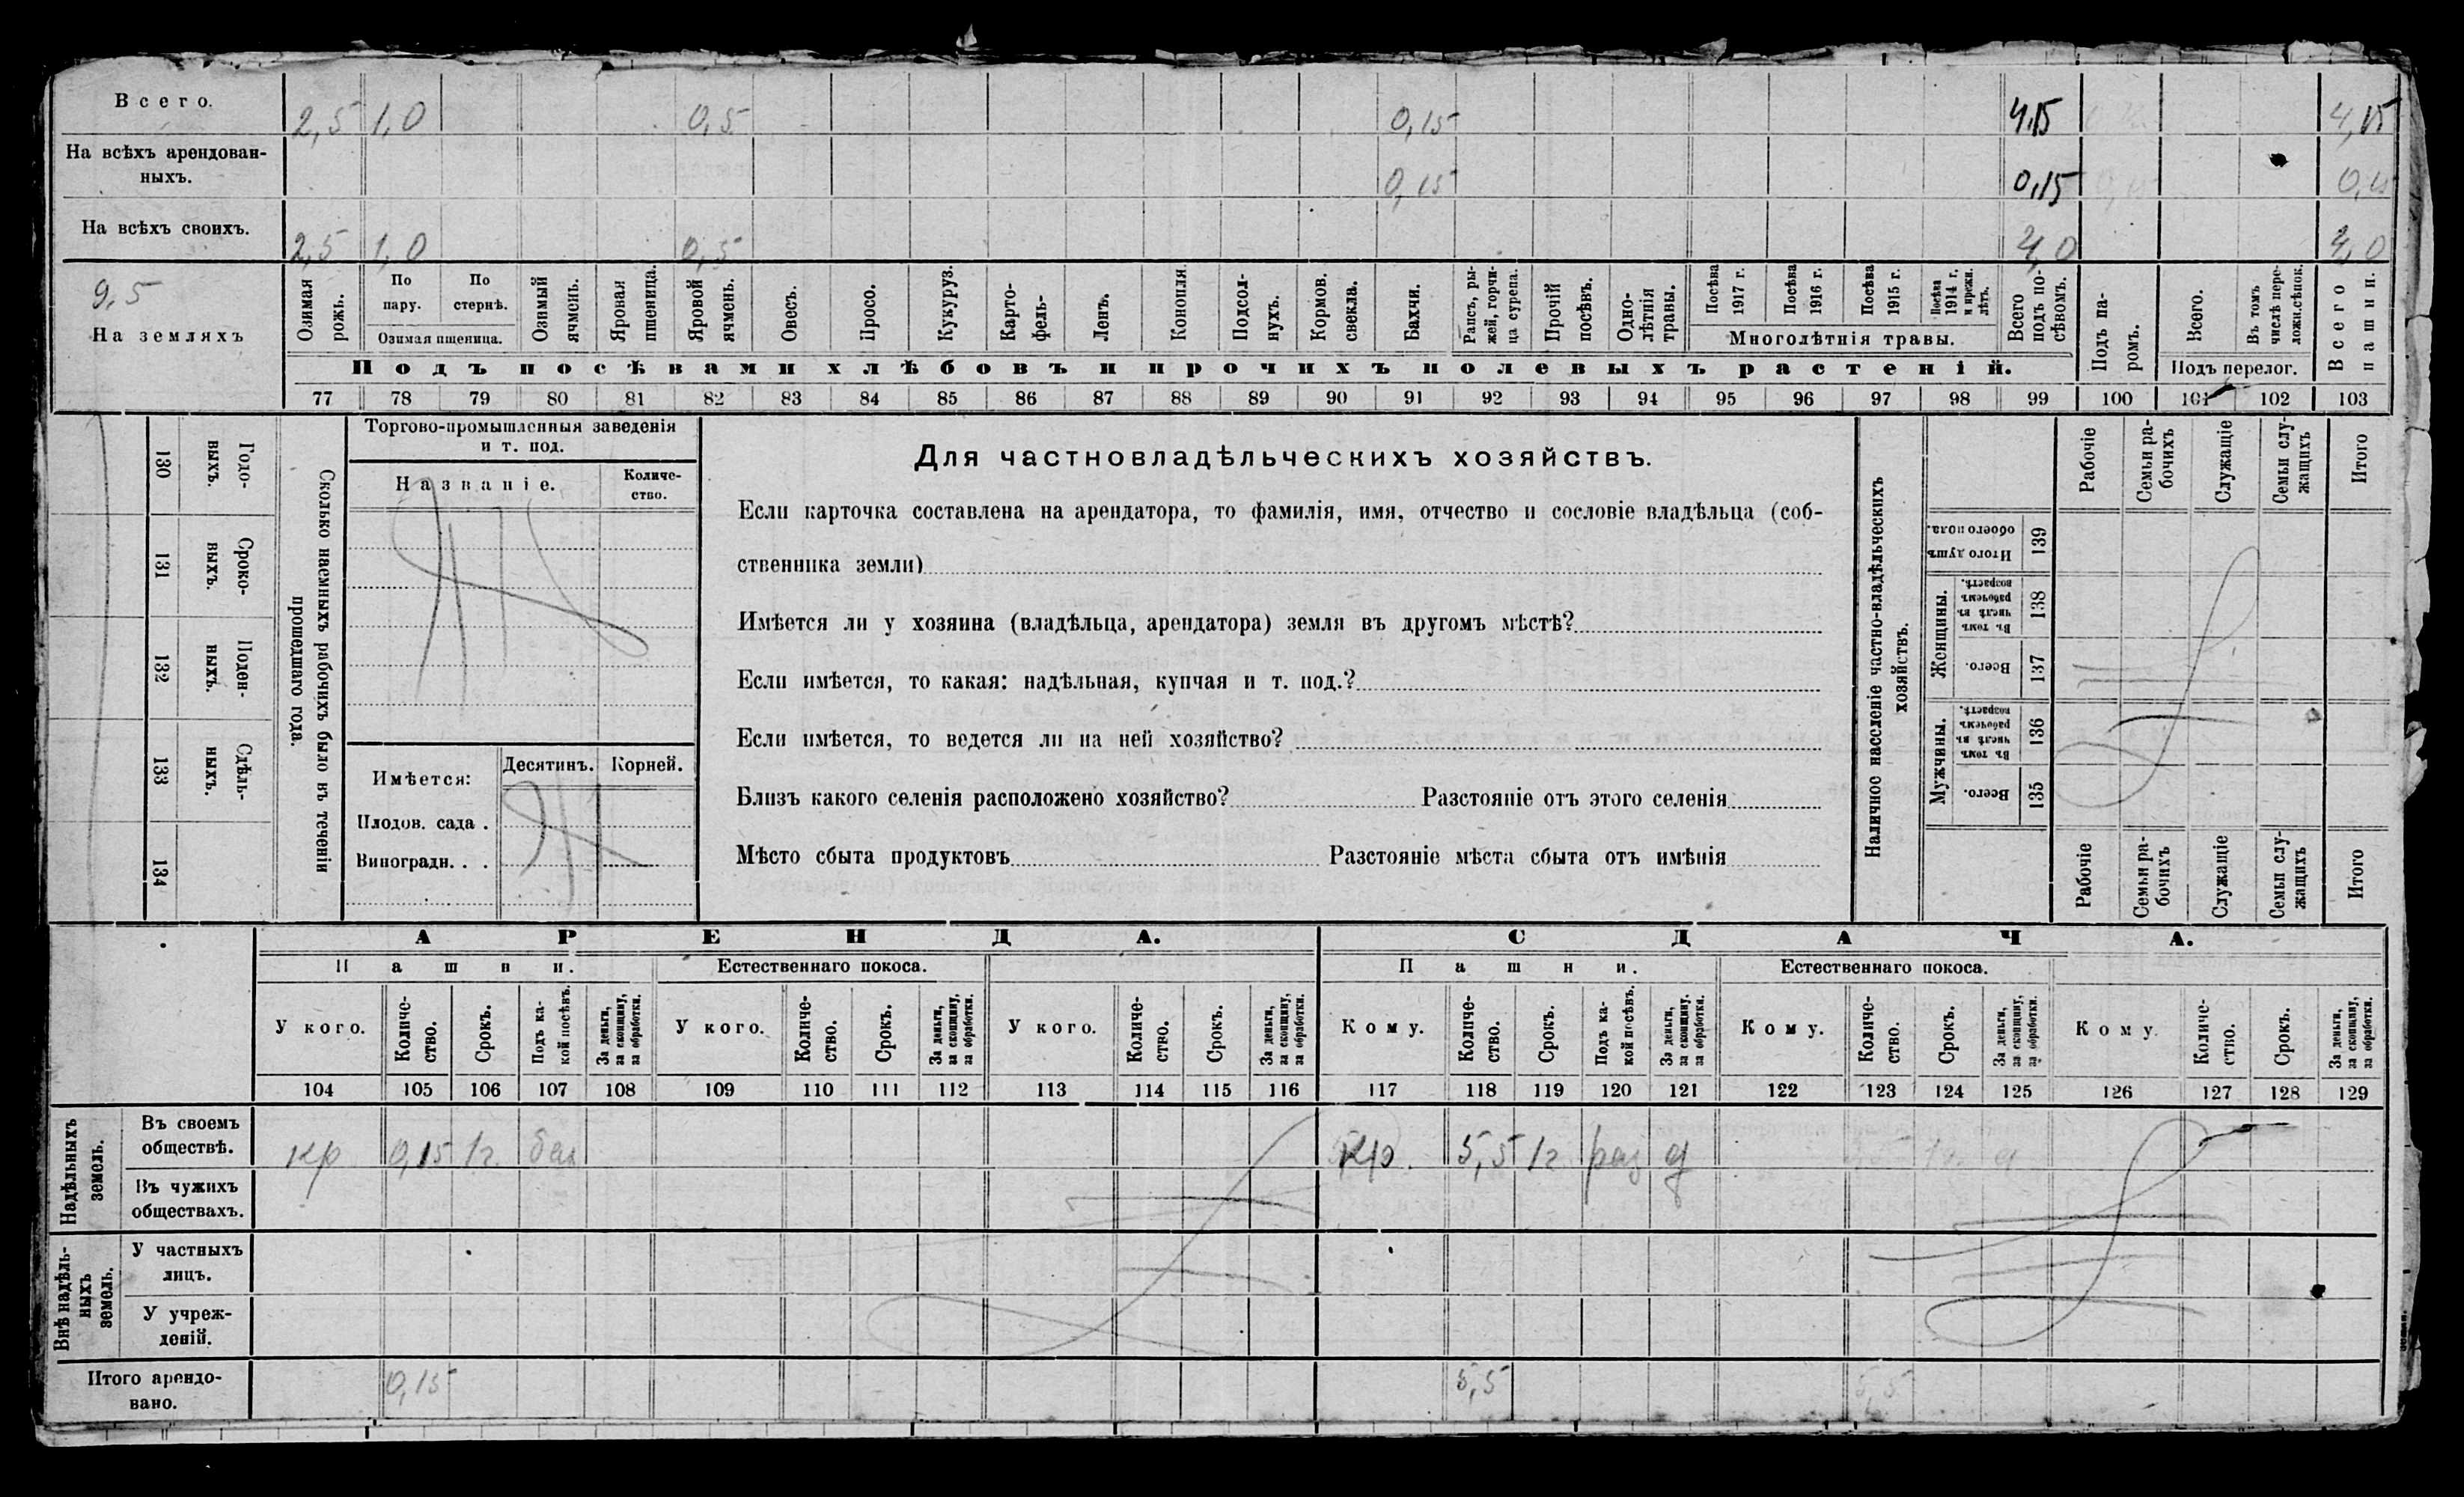 Всего. 2,5 1,0 0,5 0,15 4,15 4,15
На всѣхъ арендован-
ныхъ. 0,15 0,15 0,15 0,15
На всѣхъ своихъ. 2,5 1,0 0,5 4,0 4,0
9,5
На земляхъ
Озимая рожь.
По пару.
По стернѣ.
Озимая пшеница.
Озимый ячмень.
Яровая пшеница.
Яровой ячмень.
Овесъ.
Просо.
Кукуруз.
Карто-
фель-
Ленъ.
Конопля.
Подсол-
нухъ.
Кормов.
свекла.
Бахчи.
Рапсъ, ры-
жей, горчи-
ца сурепа.
Прочій
посѣвъ.
Одно-
лѣтнія
травы.
Посѣва
1917 г.
Посѣва
1916 г.
Посѣва
1915 г.
Посѣва
1914 г.
и прежн.
лѣтъ.
Многолѣтнія травы.
Всего
подъ по-
сѣвомъ.
Подъ па-
ромъ.
Всего.
Въ томъ
числѣ пере-
Подъ перелог.
Всего
пашни.
Подъ посѣвами хлѣбовъ и прочихъ полевыхъ растеній.
77 78 79 80 81 82 83 84 85 86 87 88 89 90 91 92 93 94 95 96 97 98 99 100 101 102 103
130 Годо-
выхъ.
131 Сроко-
выхъ.
132 Поден-
ныхъ.
133 Сдѣль-
ныхъ.
134
Сколько наемныхъ рабочихъ было въ теченіи
прошедшаго года.
Торгово-промышленныя заведенія
и т. под.
Названіе.
Количе-
ство.
Имѣется:
Десятинъ. Корней.
Плодов. сада .
Виноградн. . .
Для частновладѣльческихъ хозяйствъ.
Если карточка составлена на арендатора, то фамилія, имя, отчество и сословіе владѣльца (соб-
ственника земли)
Имѣется ли у хозяина (владѣльца, арендатора) земля въ другомъ мѣстѣ?
Если имѣется, то какая: надѣльная, купчая и т. под.?
Если имѣется, то ведется ли на ней хозяйство?
Близъ какого селенія расположено хозяйство? Разстояніе отъ этого селенія
Мѣсто сбыта продуктовъ Разстояніе мѣста сбыта отъ имѣнія
Наличное населеніе частно-владѣльческихъ
хозяйствъ.
Рабочіе
Семьи ра-
бочихъ
Служащіе
Семьи слу-
жащихъ
Итого
Итого душъ
обоего пола.
139
Женщины.
Въ томъ
числѣ въ
рабочемъ
возрастѣ.
138
Всего.
137
Мужчины.
Въ томъ
числѣ въ
рабочемъ
возрастѣ.
136
Всего.
135
Рабочіе
Семьи ра-
бочихъ
Служащіе
Семьи слу-
жащихъ
Итого
АРЕНДА. СДАЧА.
Пашни. Естественнаго покоса. Пашни. Естественнаго покоса.
У кого.
Количе-
ство.
Срокъ.
Подъ ка-
кой посѣвъ.
За деньги,
за скопщину,
за обработки.
У кого.
Количе-
ство.
Срокъ.
За деньги,
за скопщину,
за обработки.
У кого.
Количе-
ство.
Срокъ.
За деньги,
за скопщину,
за обработки.
Кому.
Количе-
ство.
Срокъ.
Подъ ка-
кой посѣвъ.
За деньги,
за скопщину,
за обработки.
Кому.
Количе-
ство.
Срокъ.
За деньги,
за скопщину,
за обработки.
Кому
Количе-
ство.
Срокъ.
За деньги,
за скопщину,
за обработки.
104 105 106 107 108 109 110 111 112 113 114 115 116 117 118 119 120 121 122 123 124 125 126 127 128 129
Надѣльныхъ
земель.
Въ своемъ
обществѣ. кр 0,15 1г. бах Кр. 5,5 1г раз д
Въ чужихъ
обществахъ.
Внѣ надѣль-
ныхъ
земель.
У частныхъ
лицъ.
У учреж-
деній.
Итого арендо-
вано. 0,15 5,5 5,5